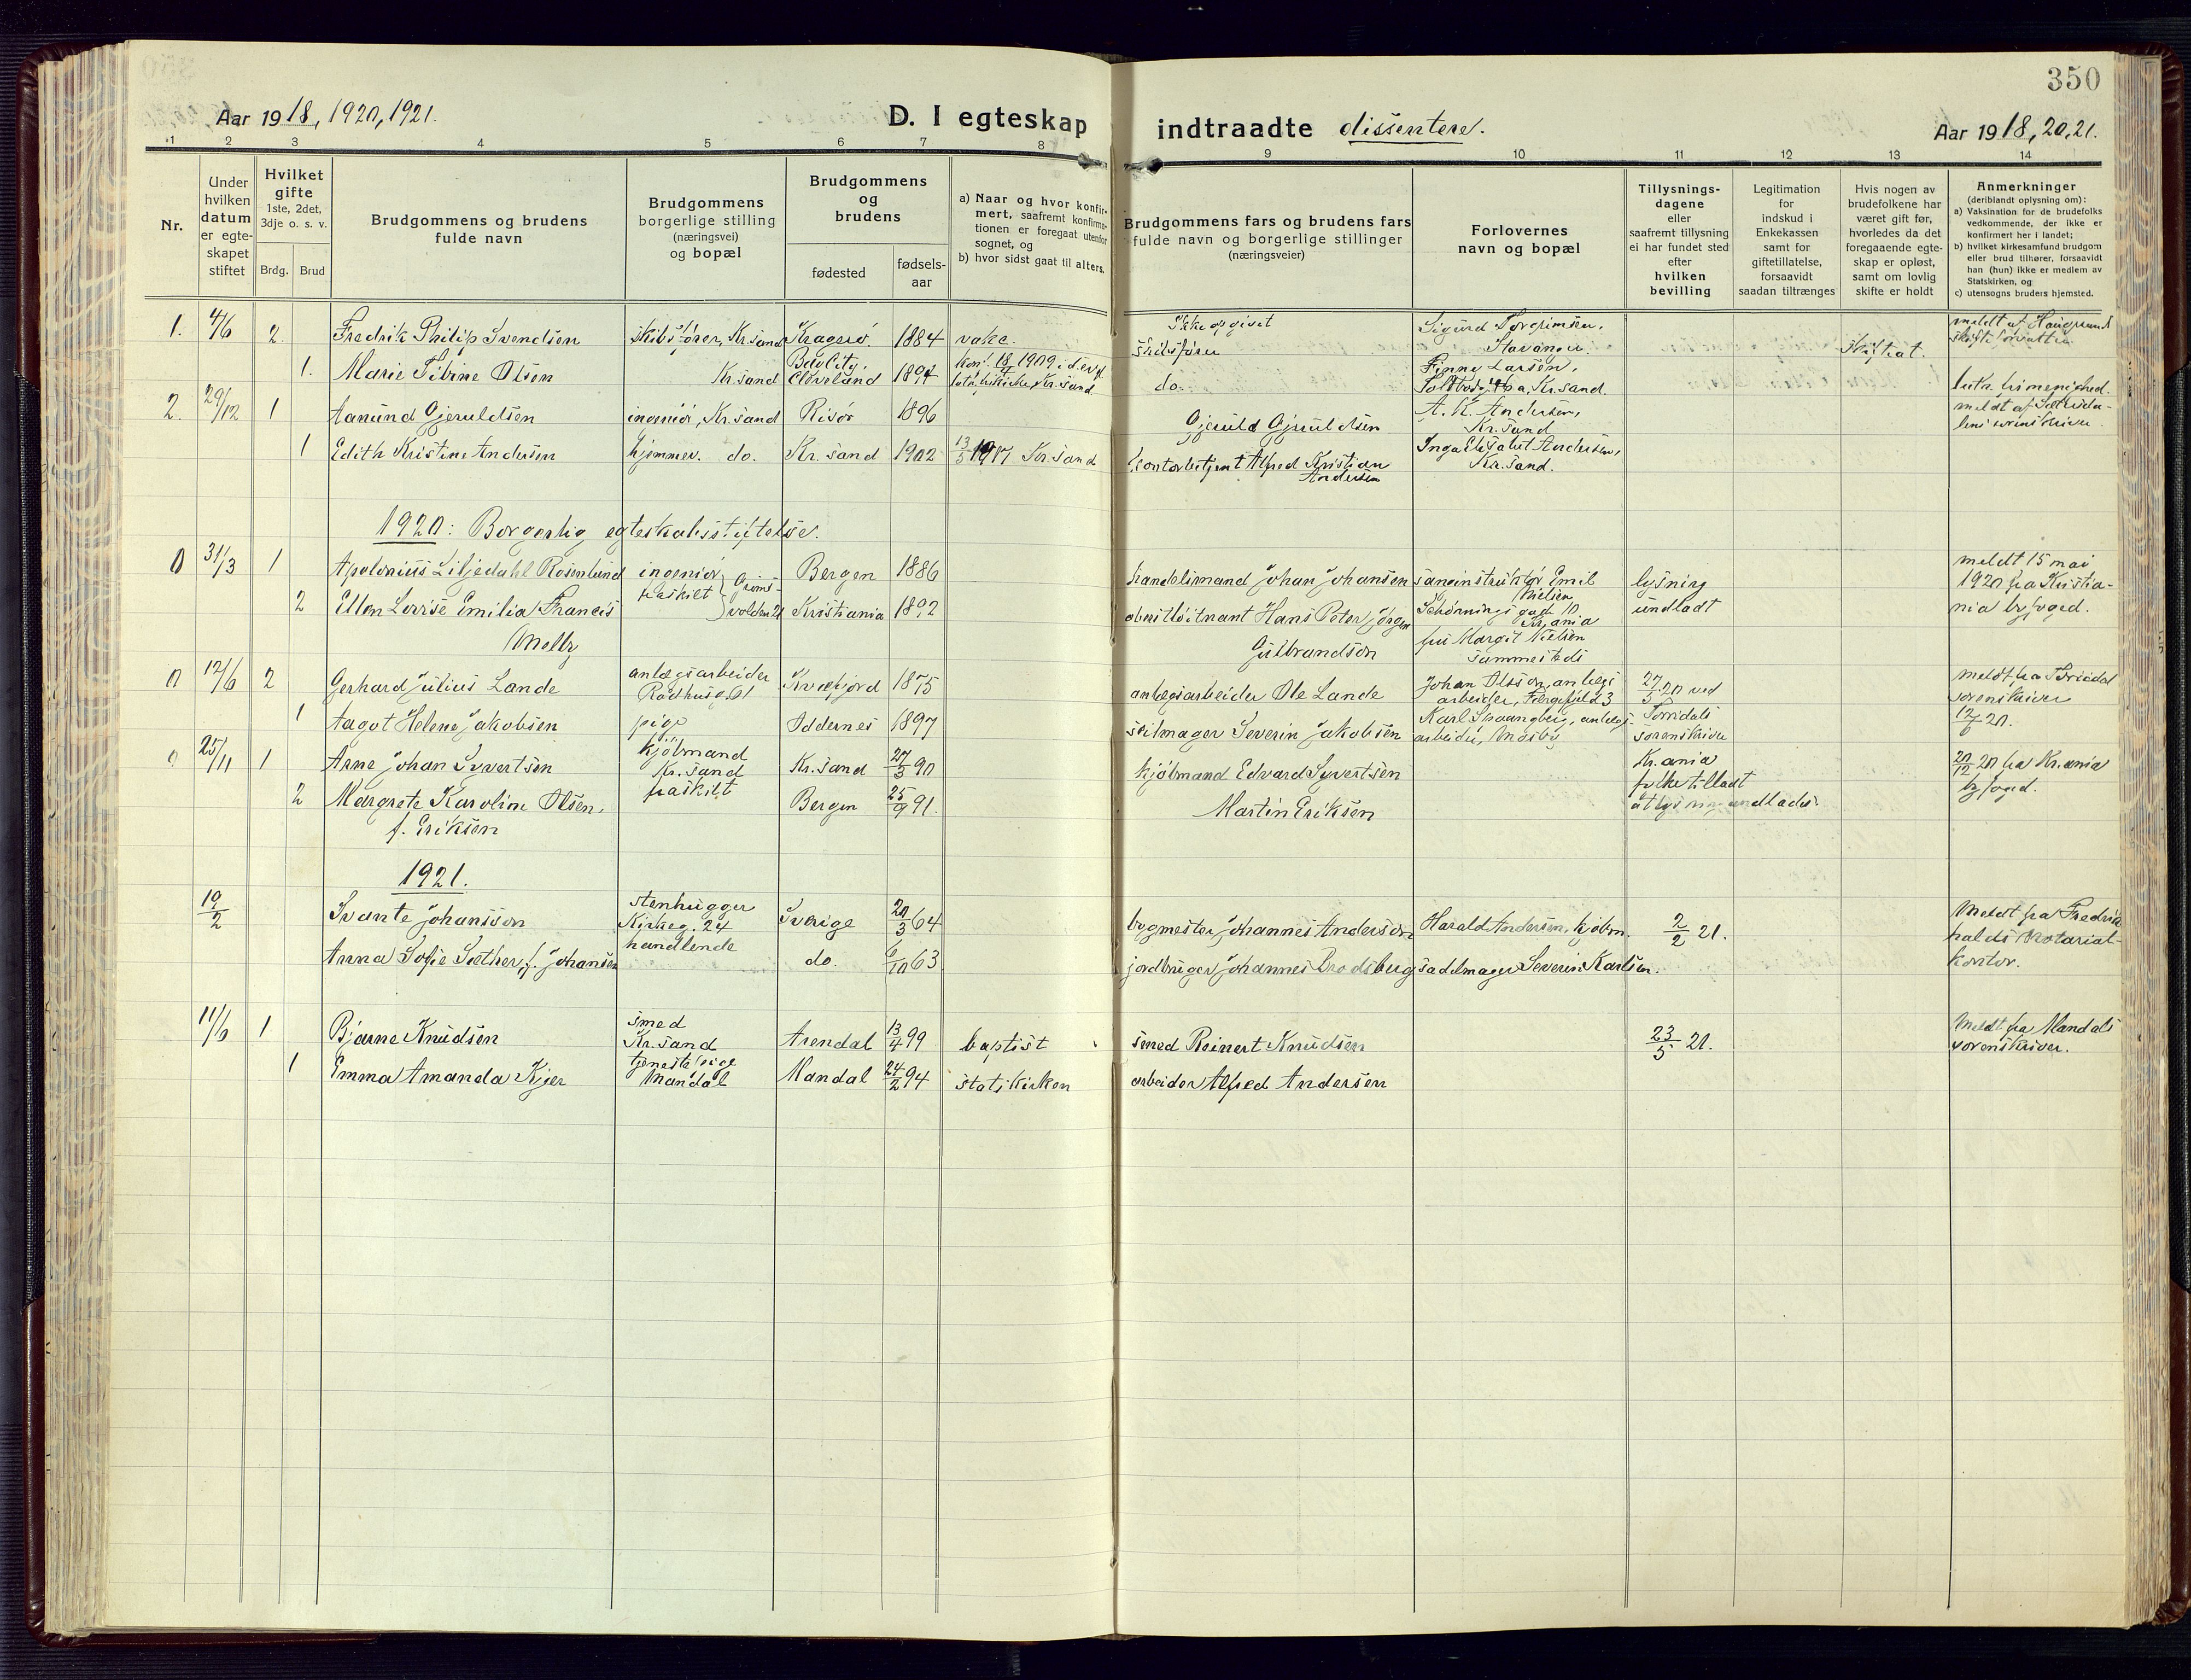 350
Aar 1918, 1920, 1921.
D. I egteskap indtraadte dissentere.
Aar 1918, 20, 21.
1 2 3 4 5 6 7 8 9 10 11 12 13 14
Nr.
Under hvilken datum er egteskapet stiftet
Hvilket gifte
1ste, 2det, 3dje o. s. v.
Brdg. Brud
Brudgommens og brudens fulde navn
Brudgommens borgerlige stilling (næringsvei) og bopæl
Brudgommens og brudens
fødested
fødselsaar
a) Naar og hvor konfirmert, saafremt konfirmationen er foregaat utenfor sognet, og
b) hvor sidst gaat til alters.
Brudgommens fars og brudens fars fulde navn og borgerlige stillinger (næringsveier)
Forlovernes navn og bopæl
Tillysningsdagene eller saafremt tillysning ei har fundet sted efter hvilken bevilling
Legitimation for indskud i Enkekassen samt for giftetillatelse, forsaavidt saadan tiltrænges
Hvis nogen av brudefolkene har været gift før, hvorledes da det foregaaende egteskap er opløst, samt om lovlig skifte er holdt
Anmerkninger (deriblandt oplysning om):
a) Vaksination for de brudefolks vedkommende, der ikke er konfirmert her i landet;
b) hvilket kirkesamfund brudgom eller brud tilhører, forsaavidt han (hun) ikke er medlem av Statskirken, og
c) utensogns bruders hjemsted.
1. 4/6 2. Fredrik Philip Svendsen skibsfører, Kr.sand Kragerø. 1884 vake. Ikke opgivet skibsfører Sigurd Torgrimsen, Stavanger.
1. Marie Olsen Kr.sand Bay City, Cleveland 1894 konf. 18/4 1909 i d. ev. luth. frikirke, Kr.sand do. Finny Larsen, Kr.sand.
2. 29/12 1 Aanund Gjeruldsen ingeniør, Kr.sand Risør 1896 Gjeruld Gjeruldsen A. K. Andersen, Kr.sand
1 Edith Kristine Andersen hjemmev. do. Kr.sand 1902 13/5 1917 Kr.sand kontorbetjent Alfred Kristian Andersen Inga Elisabet Andersen, Kr.sand.
1920: Borgerlig egteskabsstiftelse.
0 31/3 1 Apolonius Liljedahl Rosenlund ingeniør Bergen 1886 handelsmand Johan Johansen sanginstruktør Emil Nielsen lysning undladt meldt 15 mai 1920 fra Kristiania byfoged.
2 Ellen Lovise Emilia Francis Melby fraskilt Kristiania 1892 oberstløitnant Hans Peter Jørgen Gulbrandson Schønnings gad 10 Kr.ania fru Margit Nielsen sammesteds
0 12/6 2 Gerhard Julius Lande anlægsarbeider Raadhusg. 61 Kvæfjord 1875 anlægsarbeider Ole Lande Johan Olsson, anlegsarbeider, 27/5 20 ved Torridals sorenskriver meldt fra Torridal sorenskriver 12/6 20.
1 Aagot Helene Jakobsen pige Oddernes 1897 seilmager Severin Jakobsen Karl Spaangberg, anlegsarbeider, Mosby
0 25/11 1 Arne Johan Syvertsen kjølmand Kr.sand Kr.sand 27/3 90 kjøbmand Edvard Syvertsen Kr.ania 20/12 20 fra Kr.ania byfoged.
2 Margrete Karoline Olsen, f. Eriksen fraskilt Bergen 25/9 91. Martin Eriksen
1921.
19/2 Svante Johansson stenhugger Kirkeg. 24 Sverige 20/3 64 bygmester Johannes Anderson Harald Andersen, kjøbm. 2/2 21. Meldt fra Fredrikshalds Notarialkontor.
Anna Sofie Sæther, f. Johansen handlende do. 6/10 63 jordbruger Johannes Brodsberg sadelmager Severin Karlsen.
11/6 1 Bjarne Knudsen smed Kr.sand Arendal 13/4 99 baptist smed Reinert Knudsen 23/5 21. Meldt fra Mandals sorenskriver.
1 Emma Amanda Kjær tjenestepige Mandal Mandal 24/2 94 statskirken arbeider Alfred Andersen